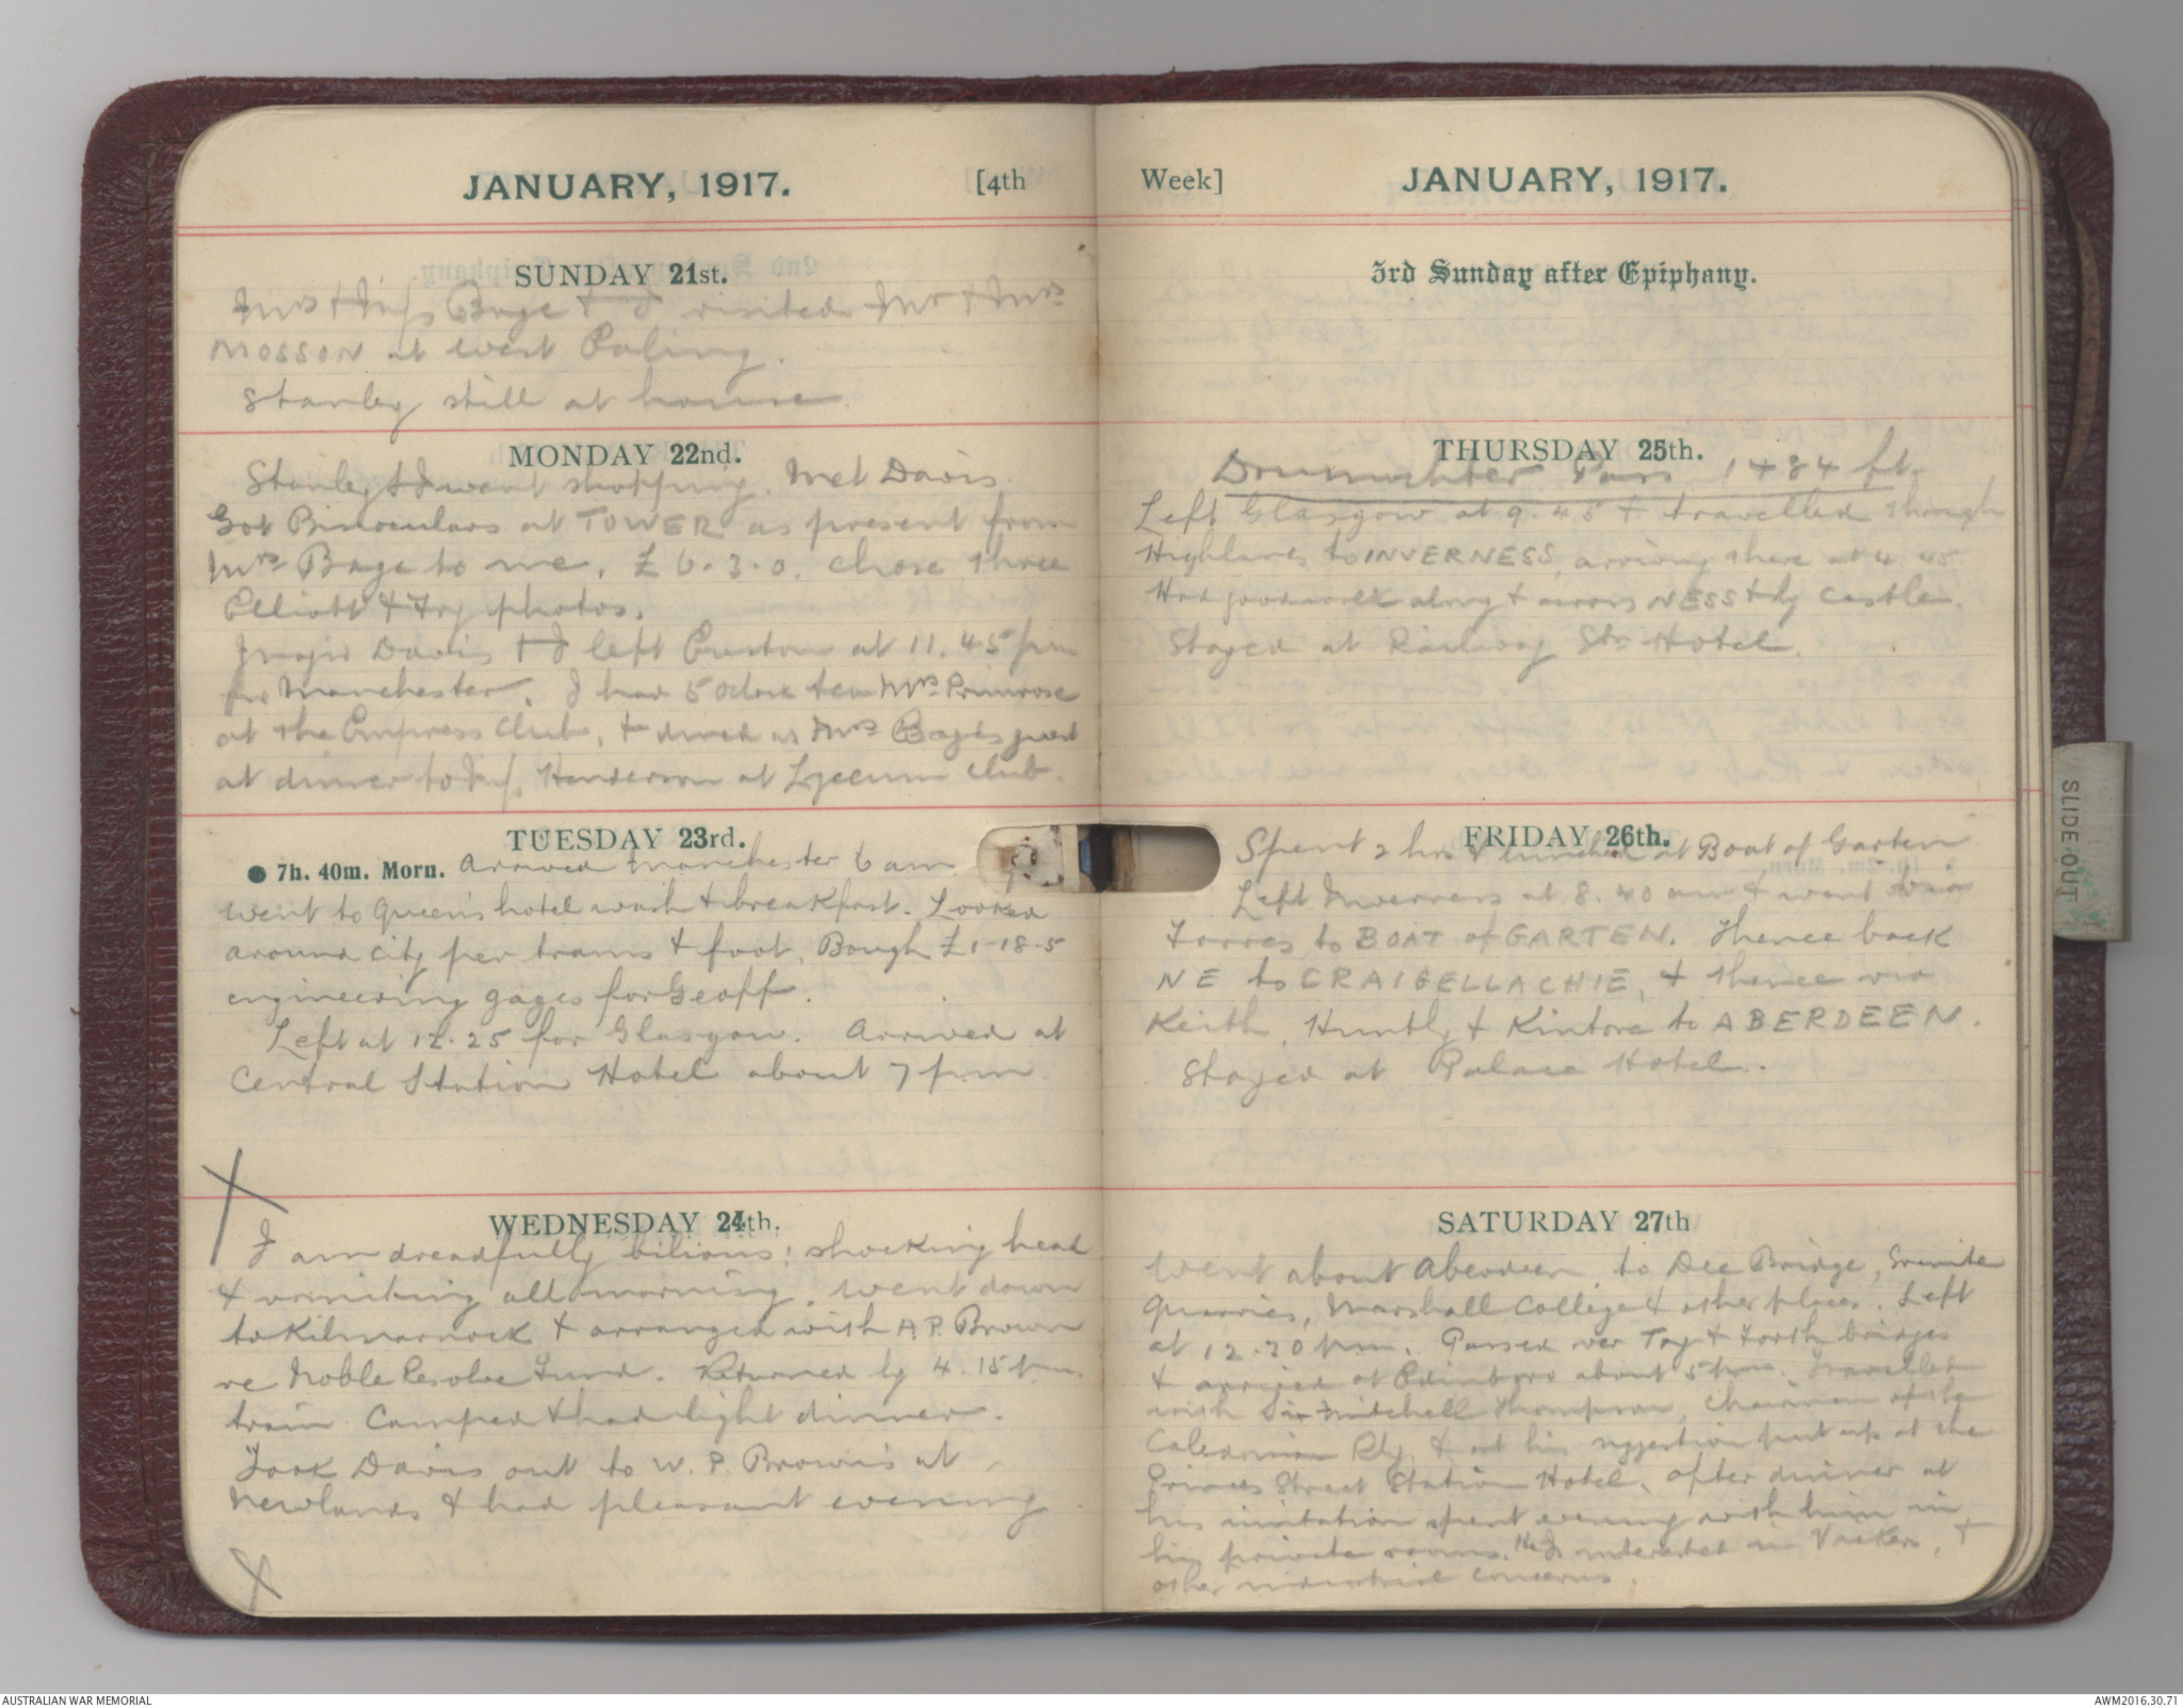 JANUARY, 1917. [4th
SUNDAY 21st.
Mrs & Miss Bage & I visited Mr & Mrs
MOSSON at West Ealing.
Stanley still at house.
MONDAY 22nd.
Stanley & I went shopping. Met Davis.
Got Binoculars at TOWER as present from
Mrs Bage to me, £6.3.0. Chose three
Elliott & Fry photos.
Major Davis & I left Euston at 11.45 pm
for Manchester. I had 5 oclock tea Mrs Primrose
at the Empress Club, & dined as Mrs Bage's guest
at dinner to Miss Henderson at Lyceum Club.
TUESDAY 23rd.
● 7h. 40m. Morn. Arrived Manchester 6 am
went to Queen's hotel wash & breakfast. Looked
around city per trams & foot. Bough £1-18-5
engineering gages for Geoff.
Left at 12.25 for Glasgow. Arrived at
Central Station Hotel about 7 pm.
WEDNESDAY 24th.
I am dreadfully bilious; shocking head
& vomiting all morning. Went down
to Kilmarnock & arranged with A.P. Brown
re Noble Resolve Fund. Returned by 4.15 pm.
train. Camped & had light dinner.
Took Davis out to W. P. Brown's at
Newlands & had pleasant evening.
Week] JANUARY, 1917.
3rd Sunday after Epiphany.
THURSDAY 25th.
Drumochter Pass 1484 ft.
Left Glasgow at 9.45 & travelled through
Highlands to INVERNESS, arriving there at 4.45
Had good walk along & across NESS & by castle.
Stayed at Railway Stn Hotel.
FRIDAY 26th.
Spent 2 hrs & lunched at Boat of Garten
Left Inverness at 8.40 am & went via
Forres to BOAT of GARTEN. Thence back
NE to CRAIGELLACHIE, & thence via
Keith, Huntly & Kintore to ABERDEEN.
Stayed at Palace Hotel.
SATURDAY 27th
Went about Aberdeen, to Dee Bridge, Granite
Quarries, Marshall College & other places. Left
at 12.30 pm. Passed over Tay & Forth bridges
& arrived at Edinboro about 5 pm. Travelled
with Sir Mitchell Thompson, Chairman of the
Caledonian Rly, & at his suggestion put up at the
Princes Street Station Hotel, after dinner at
his invitation spent evening with him in
his private rooms. He is interested in Vickers, &
other industrial concerns.
SLIDE OUT
AUSTRALIAN WAR MEMORIAL
AWM2016.30.71